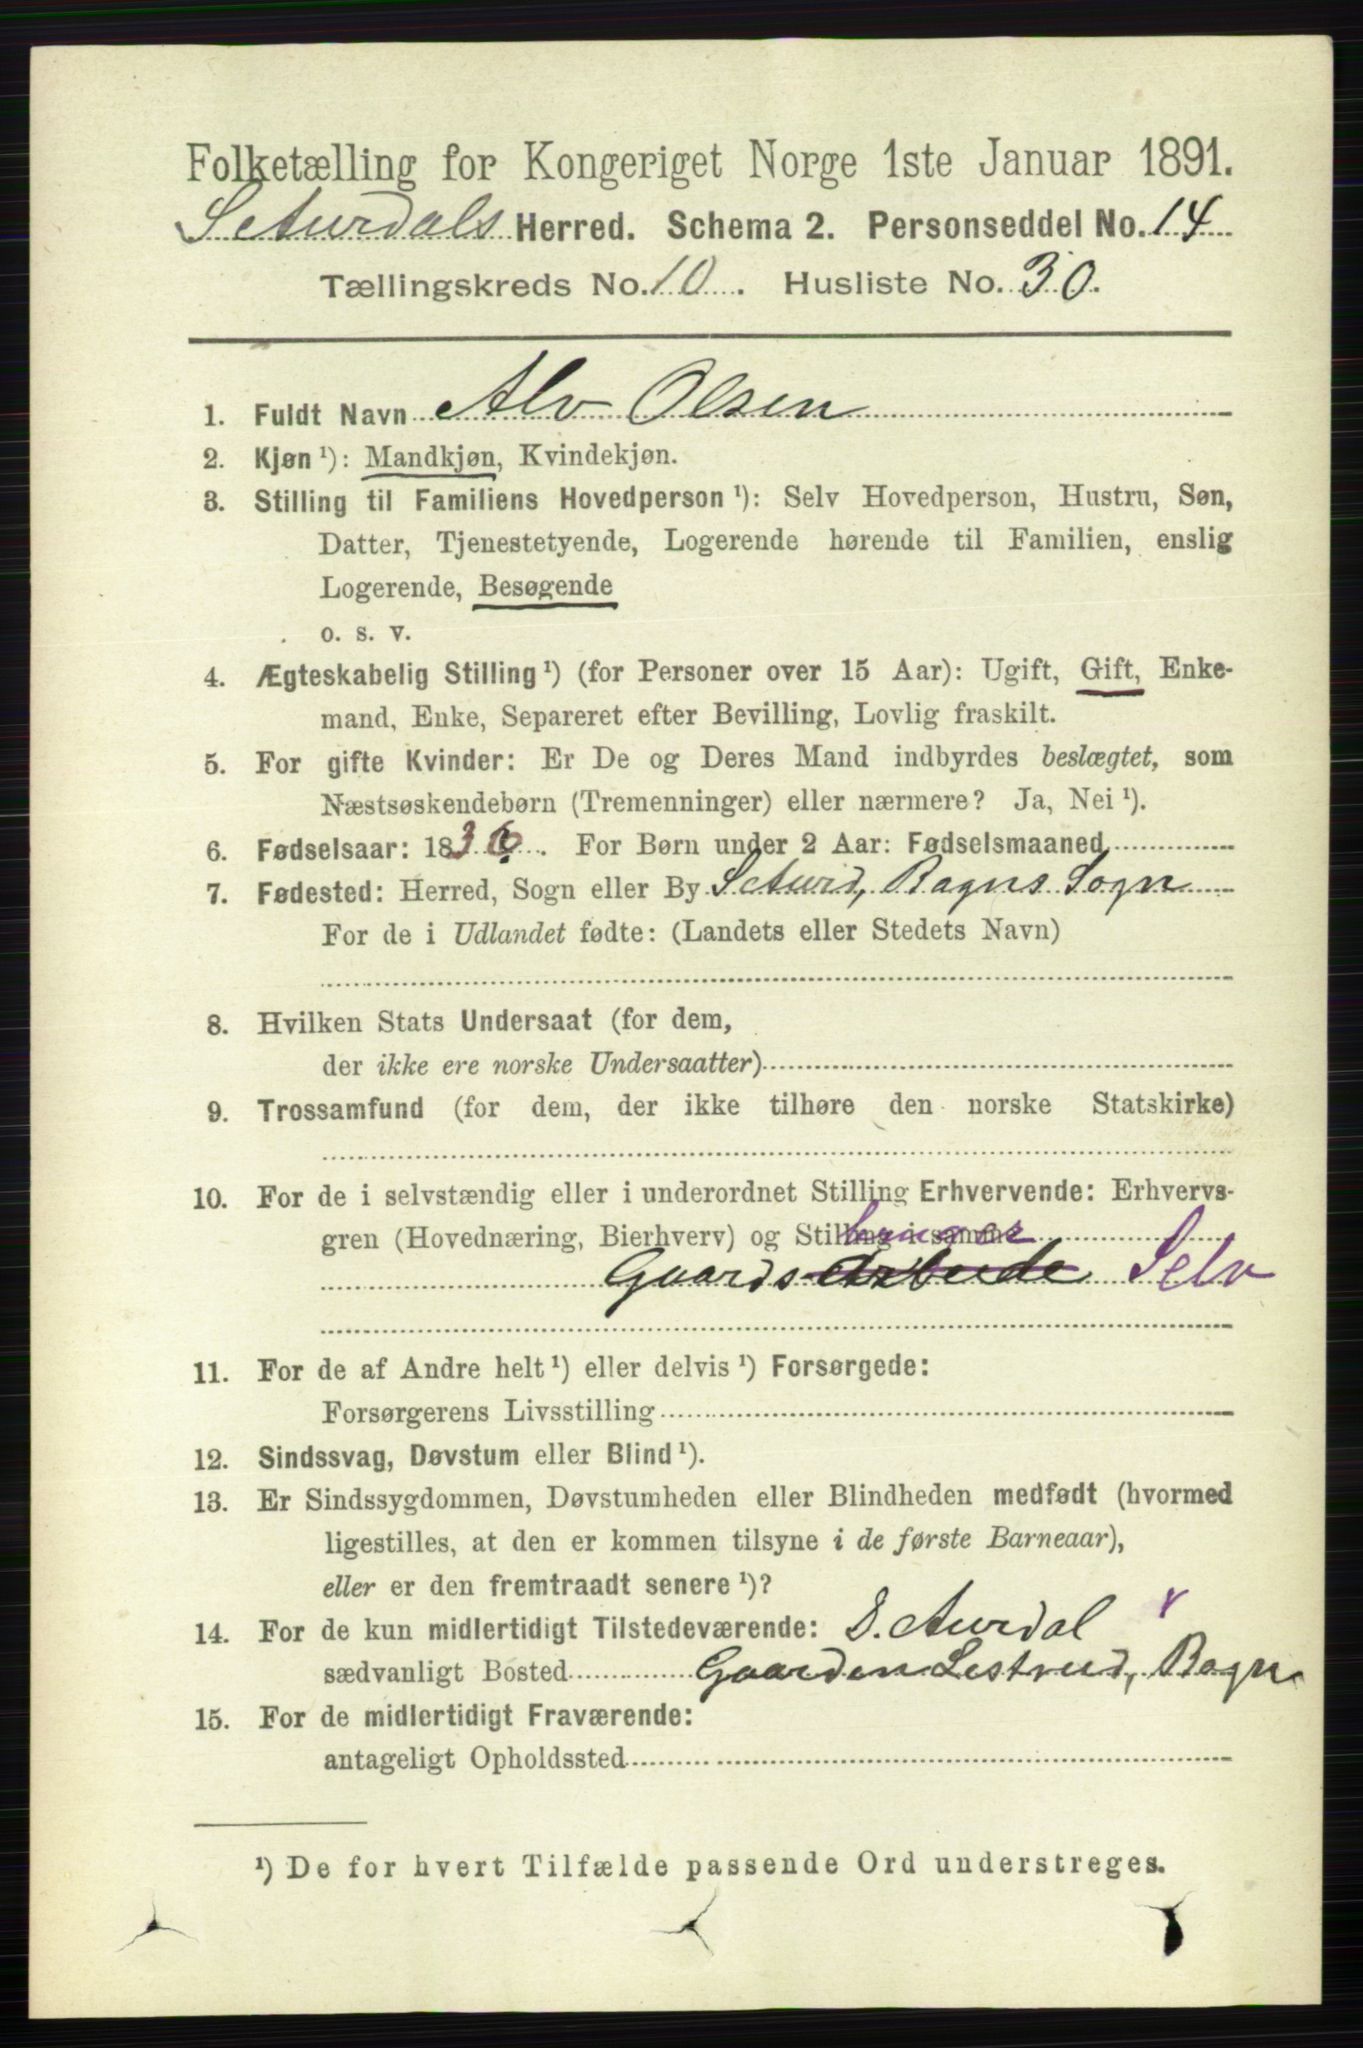 Folketælling for Kongeriget Norge 1ste Januar 1891.
S Aurdals Herred. Schema 2. Personseddel No. 14
Tællingskreds No. 10. Husliste No. 30.
1. Fuldt Navn Alv Olsen
2. Kjøn ¹): Mandkjøn, Kvindekjøn.
3. Stilling til Familiens Hovedperson ¹): Selv Hovedperson, Hustru, Søn,
Datter, Tjenestetyende, Logerende hørende til Familien, enslig
Logerende, Besøgende
o. s. v.
4. Ægteskabelig Stilling ¹) (for Personer over 15 Aar): Ugift, Gift, Enke-
mand, Enke, Separeret efter Bevilling, Lovlig fraskilt.
5. For gifte Kvinder: Er De og Deres Mand indbyrdes beslægtet, som
Næstsøskendebørn (Tremenninger) eller nærmere? Ja, Nei ¹).
6. Fødselsaar: 1836. For Børn under 2 Aar: Fødselsmaaned
7. Fødested: Herred, Sogn eller By S Aurd, Bagns Sogn
For de i Udlandet fødte: (Landets eller Stedets Navn)
8. Hvilken Stats Undersaat (for dem,
der ikke ere norske Undersaatter)
9. Trossamfund (for dem, der ikke tilhøre den norske Statskirke)
10. For de i selvstændig eller i underordnet Stilling Erhvervende: Erhvervs-
gren (Hovednæring, Bierhverv) og Stilling i samme
bruger
Gaards Arbeide Selv
11. For de af Andre helt ¹) eller delvis ¹) Forsørgede:
Forsørgerens Livsstilling
12. Sindssvag, Døvstum eller Blind ¹).
13. Er Sindssygdommen, Døvstumheden eller Blindheden medfødt (hvormed
ligestilles, at den er kommen tilsyne i de første Barneaar),
eller er den fremtraadt senere ¹)?
14. For de kun midlertidigt Tilstedeværende: S. Aurdal
sædvanligt Bosted Gaarden Lestrud, Bagn
15. For de midlertidigt Fraværende:
antageligt Opholdssted
¹) De for hvert Tilfælde passende Ord understreges.